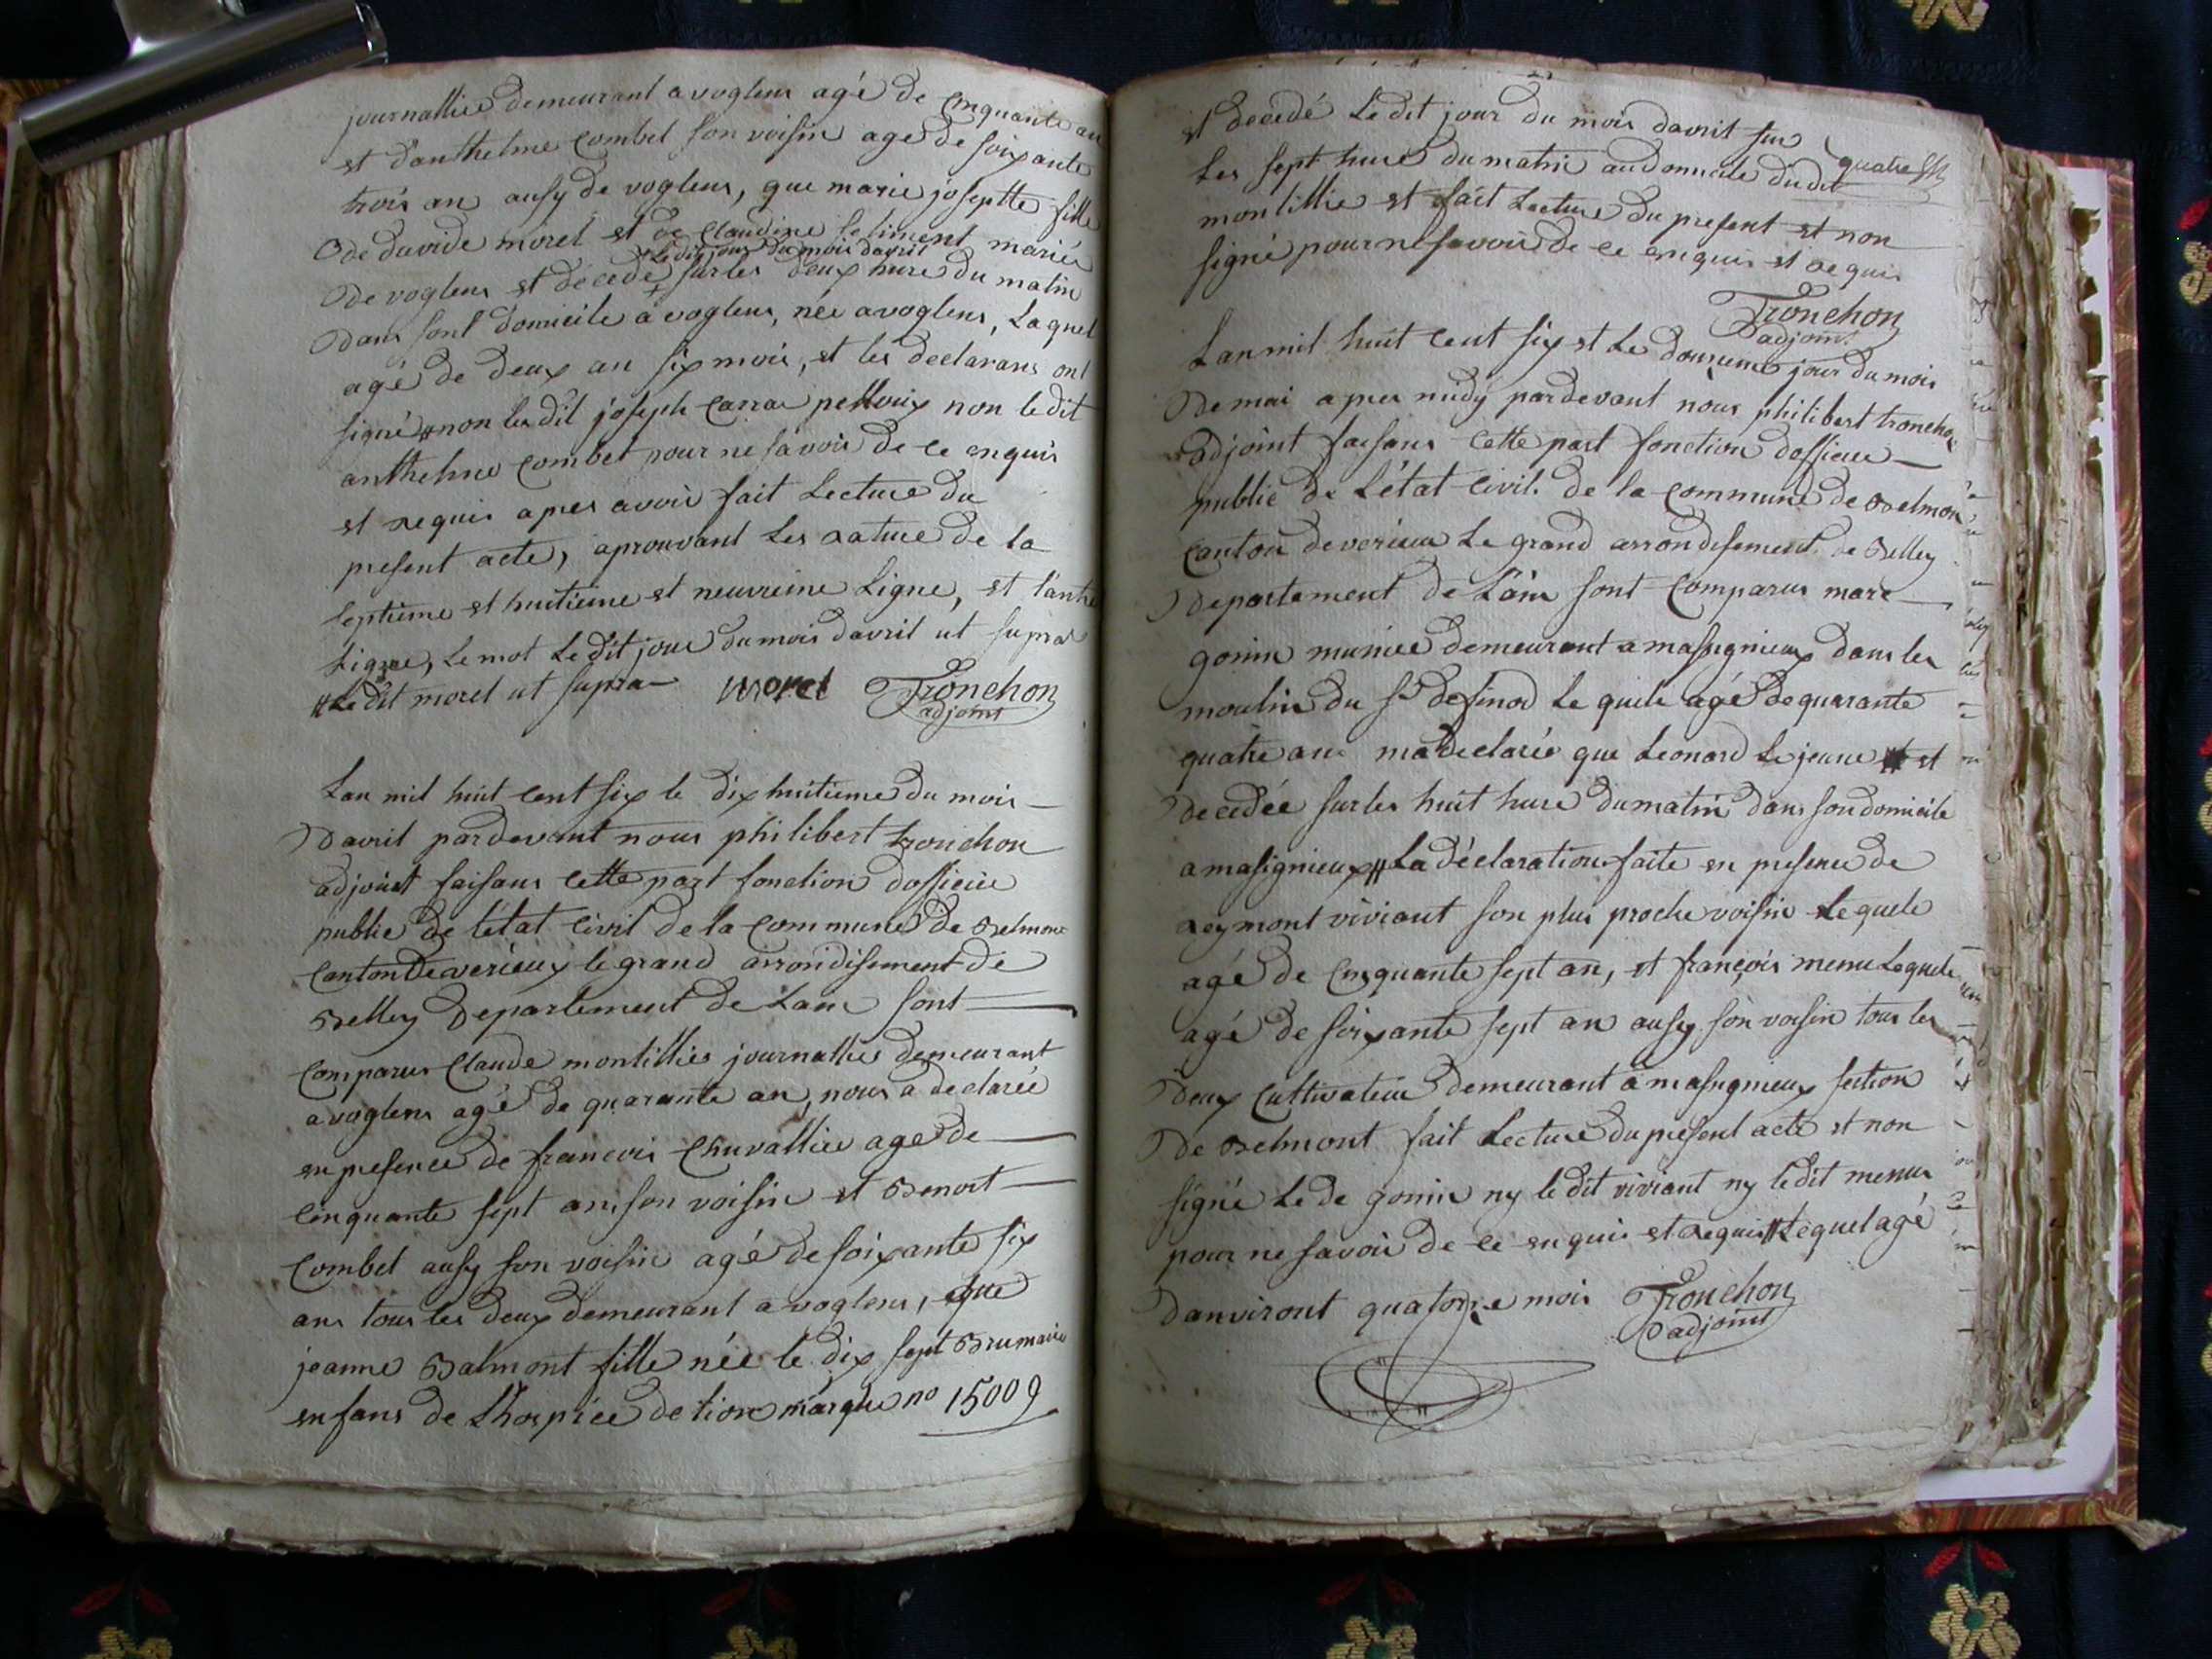 journallier demeurant a voglens agé de cinquante an
et danthelme combet son voisin age de soixante
trois an ausy de voglens, que marie joseptte fille
de davide morel et de Claudine mariés
le dit jour du mois davril
de voglens et décédé sur les deux hure du matin
dans sont domicile a voglens, née a voglens, Laquel
agé de deux an six mois, et les declarans ont
signé # non les dit joseph Carra pelloux non le dit
anthelme combet pour ne savoir de ce enquis
et requis apres avoir fait Lecture du
present acte, aprouvant Les rature de la
septième et huitieme et neuvieme Ligne, et l'antre
Ligne, Le mot Le dit jour du mois davril ut supra
# Le dit morel ut supra morel Tronchon
adjoint
Lan mil huit cent six le dix huitieme du mois
davril pardevant nous philibert tronchon
adjoint faisans cette part fonction dofficier
public de létat Civil de la Commune de Belmont
Canton de verieux le grand arrondisement de
Belley Departement de Lain sont
Comparus Claude montillier journallier demeurant
a voglens agé de quarante an, nous a declarée
en presence de francois Chuvallier age de
Cinquante sept an, son voisin et Benoit
Combet ausy son voisin agé de soixante six
ans tous les deux demeurant a voglens, que
jeanne Balmont fille née le dix sept Brumaire
enfans de Lhospice de lion marque no 15009
et decedé Le dit jour du mois davril sur
Les sept hure du matin au domicile du dit quatre
montillie et fait Lecture du present et non
signé pour ne savoir de ce enquis et requis
Tronchon
adjoint
Lan mil huit cent six et Le douzieme jour du mois
De mai apres midy pardevant nous philibert tronchon
adjoint faisans cette part fonction dofficier
public de L'état Civil de la Commune de Belmon
Canton de verieux Le grand arrondisement de Belley
Departement de L'ain sont Comparus marc
gonin munier demeurant a massignieux dans les
moulin du Sr definod Le quele agé de quarante
quatre ans ma declarée que Leonard Le jeune et
decedée sur les huit hure du matin dans son domicile
a masignieux # La déclaration faite en presence de
reymont viviant son plus proche voisin Le quele
agé de Cinquante sept an, et françois menu Le quele
agé de soixante sept an ausy son voisin tous les
Deux Cultivateur demeurant a massignieux section
De Belmont fait Lecture du present acte et non
signé Le de gonin ny le dit viviant ny le dit menu
pour ne savoir de ce enquis et requis # Le quel agé
danviront quatorze mois Tronchon
adjoint